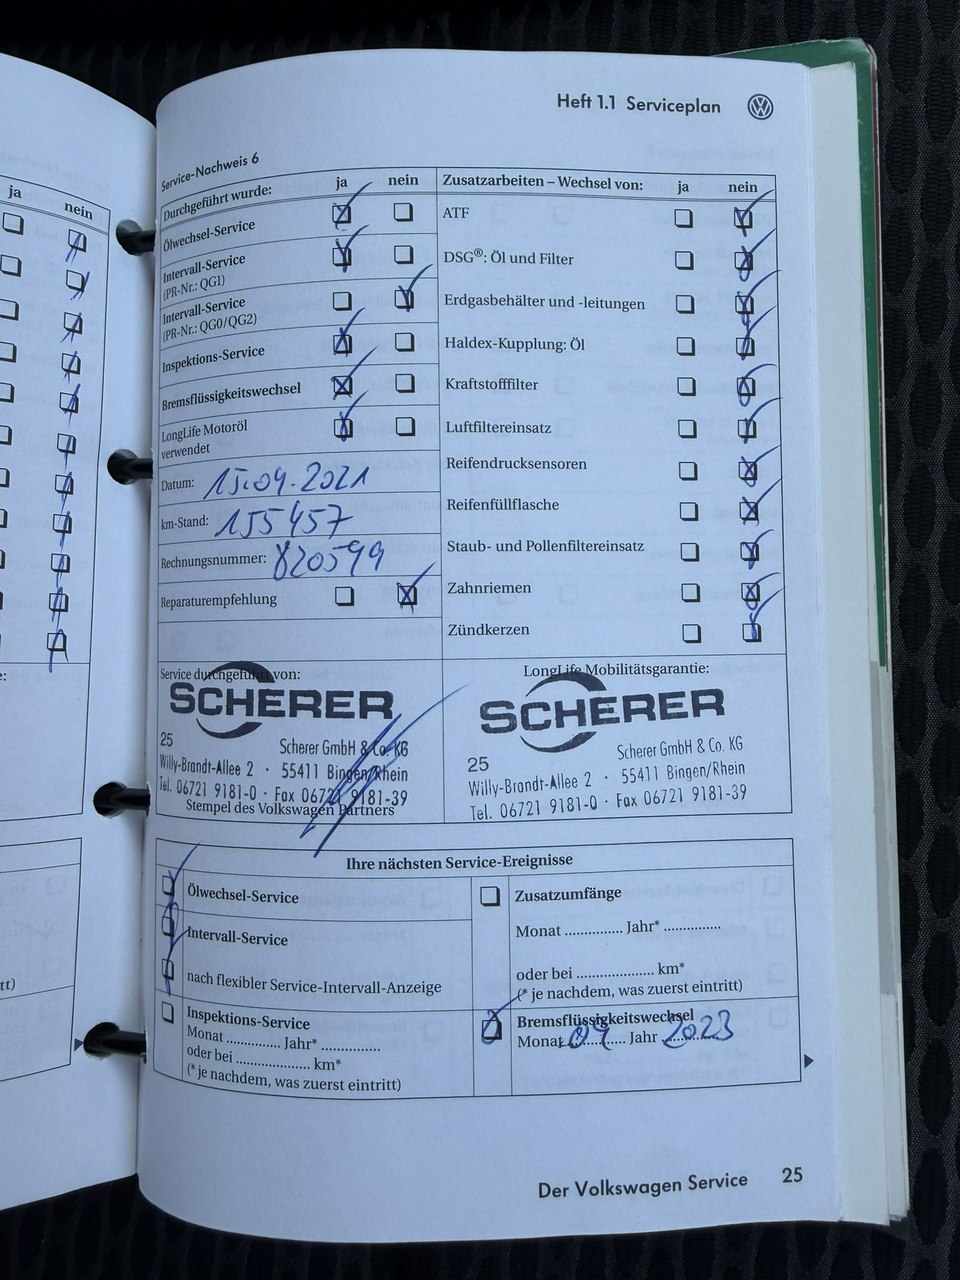 ja
nein
tt)
Heft 1.1 Serviceplan
Service-Nachweis 6
Durchgeführt wurde: ja nein
Ölwechsel-Service
Intervall-Service
(PR-Nr.: QG1)
Intervall-Service
(PR-Nr.: QG0/QG2)
Inspektions-Service
Bremsflüssigkeitswechsel
LongLife Motoröl
verwendet
Datum: 15.09.2021
km-Stand: 155457
Rechnungsnummer: 820599
Reparaturempfehlung
Zusatzarbeiten – Wechsel von: ja nein
ATF
DSG®: Öl und Filter
Erdgasbehälter und -leitungen
Haldex-Kupplung: Öl
Kraftstofffilter
Luftfiltereinsatz
Reifendrucksensoren
Reifenfüllflasche
Staub- und Pollenfiltereinsatz
Zahnriemen
Zündkerzen
Service durchgeführt von:
SCHERER
25 Scherer GmbH & Co. KG
Willy-Brandt-Allee 2 · 55411 Bingen/Rhein
Tel. 06721 9181-0 · Fax 06721 9181-39
Stempel des Volkswagen Partners
LongLife Mobilitätsgarantie:
SCHERER
25 Scherer GmbH & Co. KG
Willy-Brandt-Allee 2 · 55411 Bingen/Rhein
Tel. 06721 9181-0 · Fax 06721 9181-39
Ihre nächsten Service-Ereignisse
Ölwechsel-Service
Intervall-Service
nach flexibler Service-Intervall-Anzeige
Inspektions-Service
Monat .............. Jahr* ...............
oder bei .................... km*
(* je nachdem, was zuerst eintritt)
Zusatzumfänge
Monat ............... Jahr* ...............
oder bei .................... km*
(* je nachdem, was zuerst eintritt)
Bremsflüssigkeitswechsel
Monat 09 Jahr 2023
Der Volkswagen Service 25